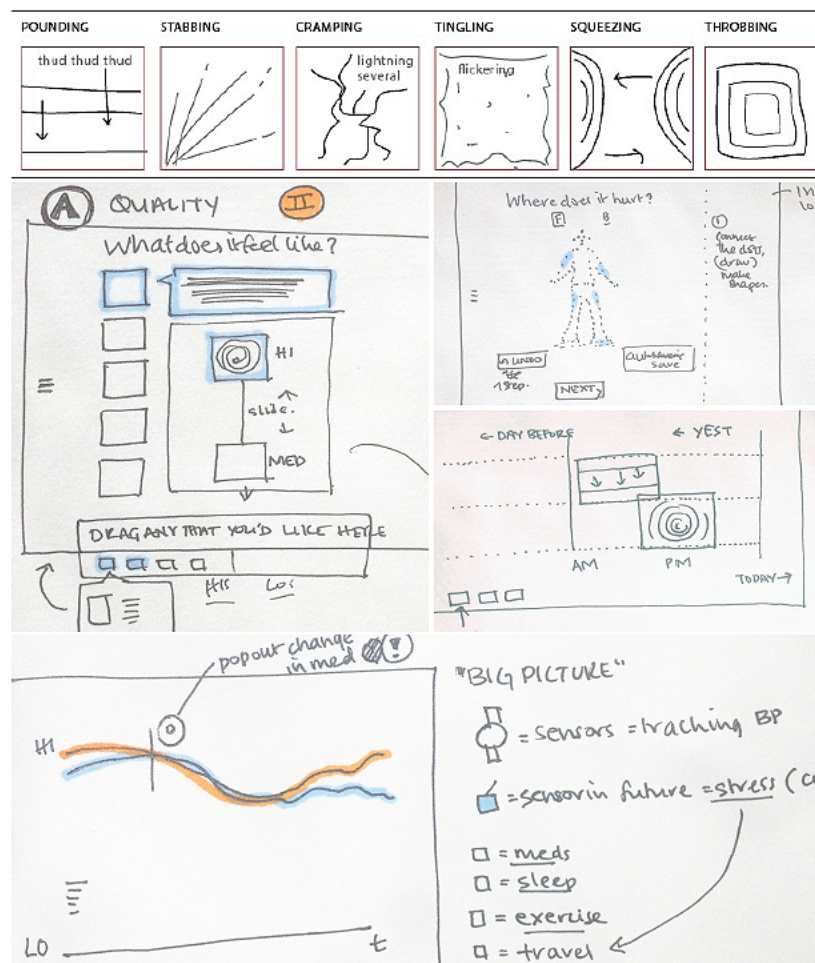 POUNDING
STABBING
CRAMPING
TINGLING
SQUEEZING
THROBBING
thud thud thud
lightning
several
flickering
A QUALITY II
What does it feel like?
HI
slide.
MED
DRAG ANY THAT YOU'D LIKE HERE
HIs
LOs
Where does it hurt?
F
B
connect
the dots,
(draw)
make
shapes.
UNDO
step.
save
NEXT
← DAY BEFORE
← YEST
AM
PM
TODAY →
popout change
in med !
HI
LO
t
"BIG PICTURE"
= sensors = tracking BP
= sensor in future = stress (
= meds
= sleep
= exercise
= travel